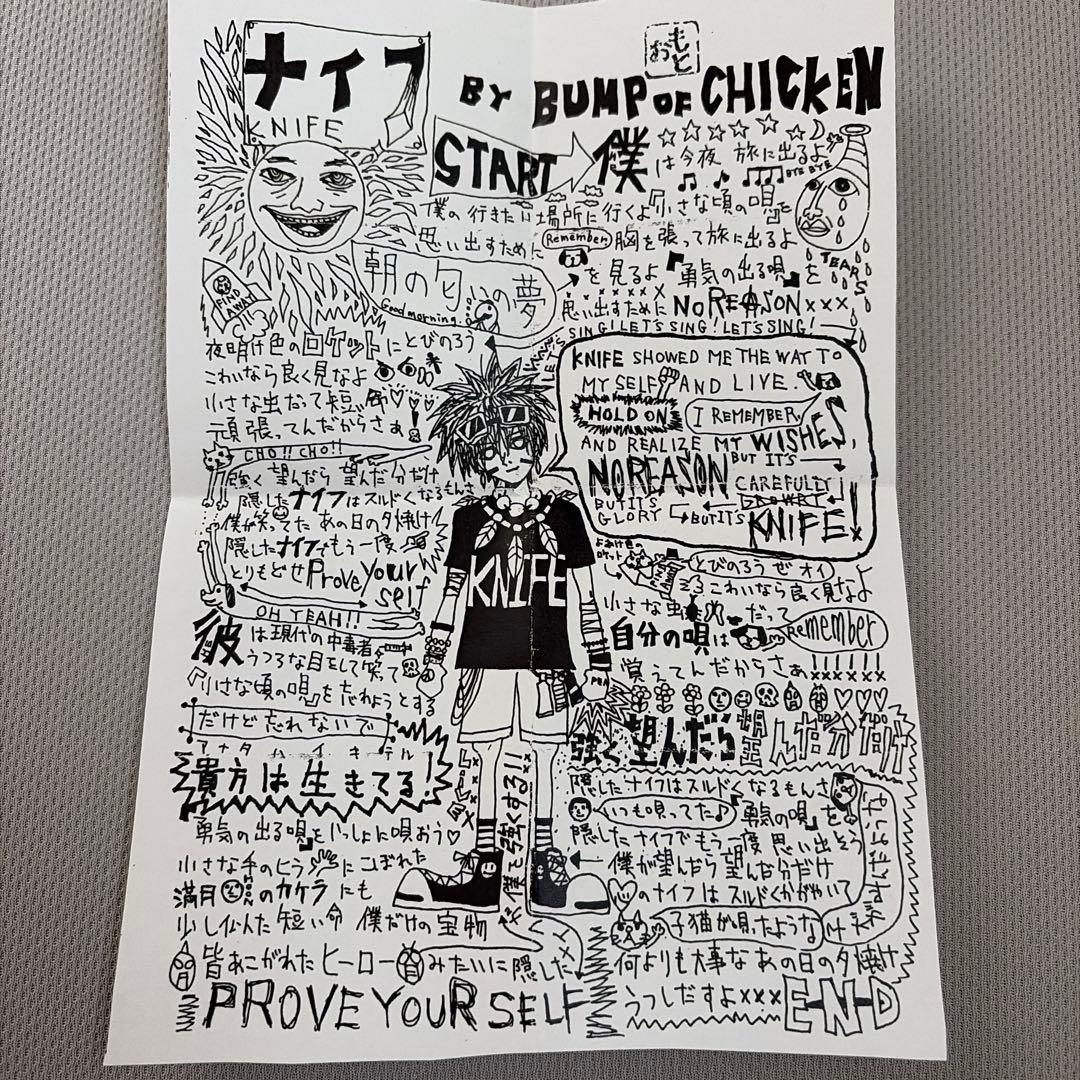 ナイフ
KNIFE
BY BUMP OF CHICKEN
おもと
START 僕は今夜 旅に出るよ
BYE BYE
僕の行きたい場所に行くよ『小さな頃の唄』を
思い出すために Remember 胸を張って旅に出るよ
TEARS
朝の匂いの夢
Good morning.
を見るよ『勇気の出る唄』を
思い出すために NO REASON ×××
SING! LET'S SING! LET'S SING!
LET'S
FIND A WAY!
夜明け色のロケットにとびのろう
こわいなら良く見なよ
小さな虫だって短い命
頑張ってんだからさぁ!
CHO!! CHO!!
強く望んだら 望んだ分だけ
隠したナイフはスルドくなるもんさ
僕が笑ってた あの日の夕焼け
隠したナイフでもう一度
とりもどせ Prove your self
OH YEAH!!
彼は現代の中毒者
うつろな目をして笑って
『小さな頃の唄』を忘れようとする
だけど忘れないで
アナタ ハ イキテル
貴方は生きてる!
勇気の出る唄をいっしょに唄おう♡
小さな手のヒラにこぼれた
満月のカケラにも
少し似た 短い命 僕だけの宝物
皆あこがれたヒーローみたいに隠した
PROVE YOUR SELF
KNIFE
LIVE
僕を強くする!!
KNIFE SHOWED ME THE WAY TO
MY SELF AND LIVE.
HOLD ON I REMEMBER,
AND REALIZE MY WISHES,
NO REASON BUT IT'S
CAREFULLY
BUT IT'S
GLORY BUT IT'S KNIFE!
よあけ色の
ロケット
とびのろうぜ オイ
こわいなら良く見なよ
小さな虫だって
自分の唄は Remember
覚えてんだからさぁ
強く望んだら望んだ分だけ
隠したナイフはスルドくなるもんさ
いつも唄ってた♪『勇気の唄』を
隠したナイフでもう一度思い出そう
僕が望んだら望んだ分だけ
♡のナイフはスルドくかがやいて
子猫が唄ったような
何よりも大事なあの日の夕焼け
うつしだすよ××× E-N-D